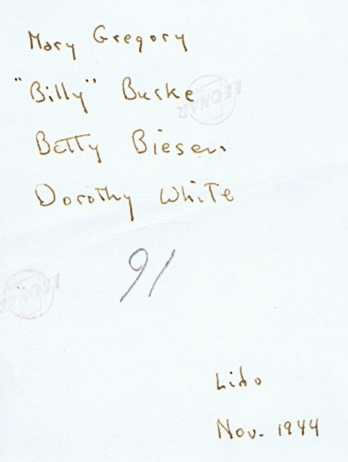 Mary Gregory
"Billy" Buske
Betty Biesen
Dorothy White
91
Lido
Nov. 1944